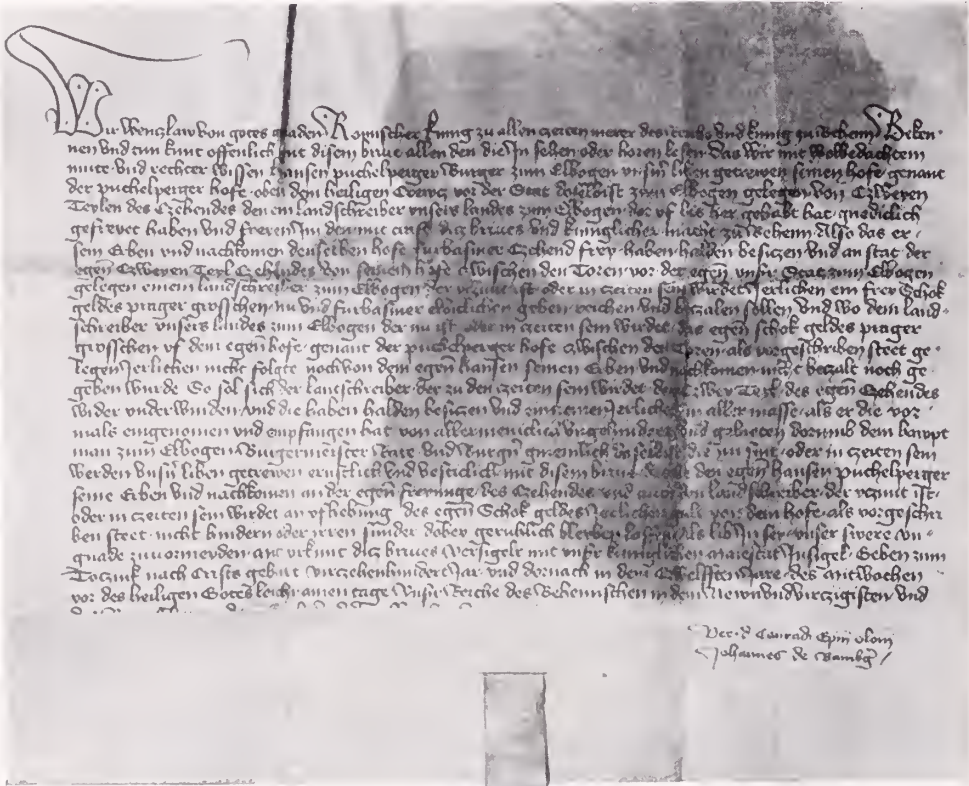 Wir Wenczlaw von gotes gnaden Romischer kunig zu allen czeiten merer des reichs und kunig zu Behem Beken-
nen und tun kunt offenlich mit disem brive allen den die In sehen oder horen lesen das wir mit wolbedachtem
mute und rechter wissen Hansen puchelperger Burger zum Elbogen unserm liben getrewen seinen hofe genant
der puchelperger hofe oben dem heiligen Crewcz vor der Stat doselbist zum Elbogen gelegen von Czweyen
Teylen des Czehendes den ein landschreiber unsers landes zum Elbogen dor uf bis her gehabt hat gnediclich
gefreyet haben und freyen In den mit craft dicz brives und kuniglicher macht zu Behem Also das er
sein Erben und nachkomen denselben hofe furbasmer Czehend frey haben halden besiczen und an stat der
egen Czweyer Teyl Czehendes von seinem hofe czwischen den Toren vor der egen unser Stat zum Elbogen
gelegen einem landschreiber zum Elbogen der yczunt ist oder in czeiten sein wirdet Jerlichen ein frey Schok
geldes prager groschen nu und furbasmer ewiclichen geben reichen und beczalen sollen und wo dem land-
schreiber unsers landes zum Elbogen der nu ist oder in czeiten sein wirdet das egen schok geldes prager
grosschen uf dem egen hofe genant der puchelperger hofe czwischen den Toren als vorgeschriben steet ge-
legen Jerlichen nicht folgte noch von dem egen hansen seinen Erben und nachkomen nicht beczalt noch ge-
geben wurde So sol sich der lantschreiber der zu den czeiten sein wirdet der czwey Teyl des egen Czehendes
wider underwinden und die haben halden besiczen und einnemen Jerlichen in aller masse als er die vor-
mals eingenomen und empfangen hat von allermeniclich ungehindert und gebieten dorumb dem hawpt
man zum Elbogen Burgermeister Rate und Burgern gmeinlich doselbist die nu sint oder in czeiten sein
werden unsern liben getrewen ernstlich und vesticlich mit disem brive das sie den egen hansen puchelperger
seine Erben und nachkomen an der egen freyunge des Czehendes und auch den landschreiber der yczunt ist
oder in czeiten sein wirdet an ufhebung des egen Schok geldes Jerlichen von dem hofe als vorgeschri-
ben steet nicht hindern oder irren sunder dobey geruhlich bleyben lossen als lib In sey unser swere un-
gnade zuvormeyden mit urkunt dicz brives versigelt mit unser kuniglichen maiestat Insigel Geben zum
Toczink nach Crists geburt virczehenhundert Jar und dornach in dem Czwelfften Jare des mitwochen
vor des heiligen Gotes leichnamen tage unser Reiche des Behemischen in dem Newnundvirczigisten und
Per d Conradum Epm olom
Johannes de Bambg